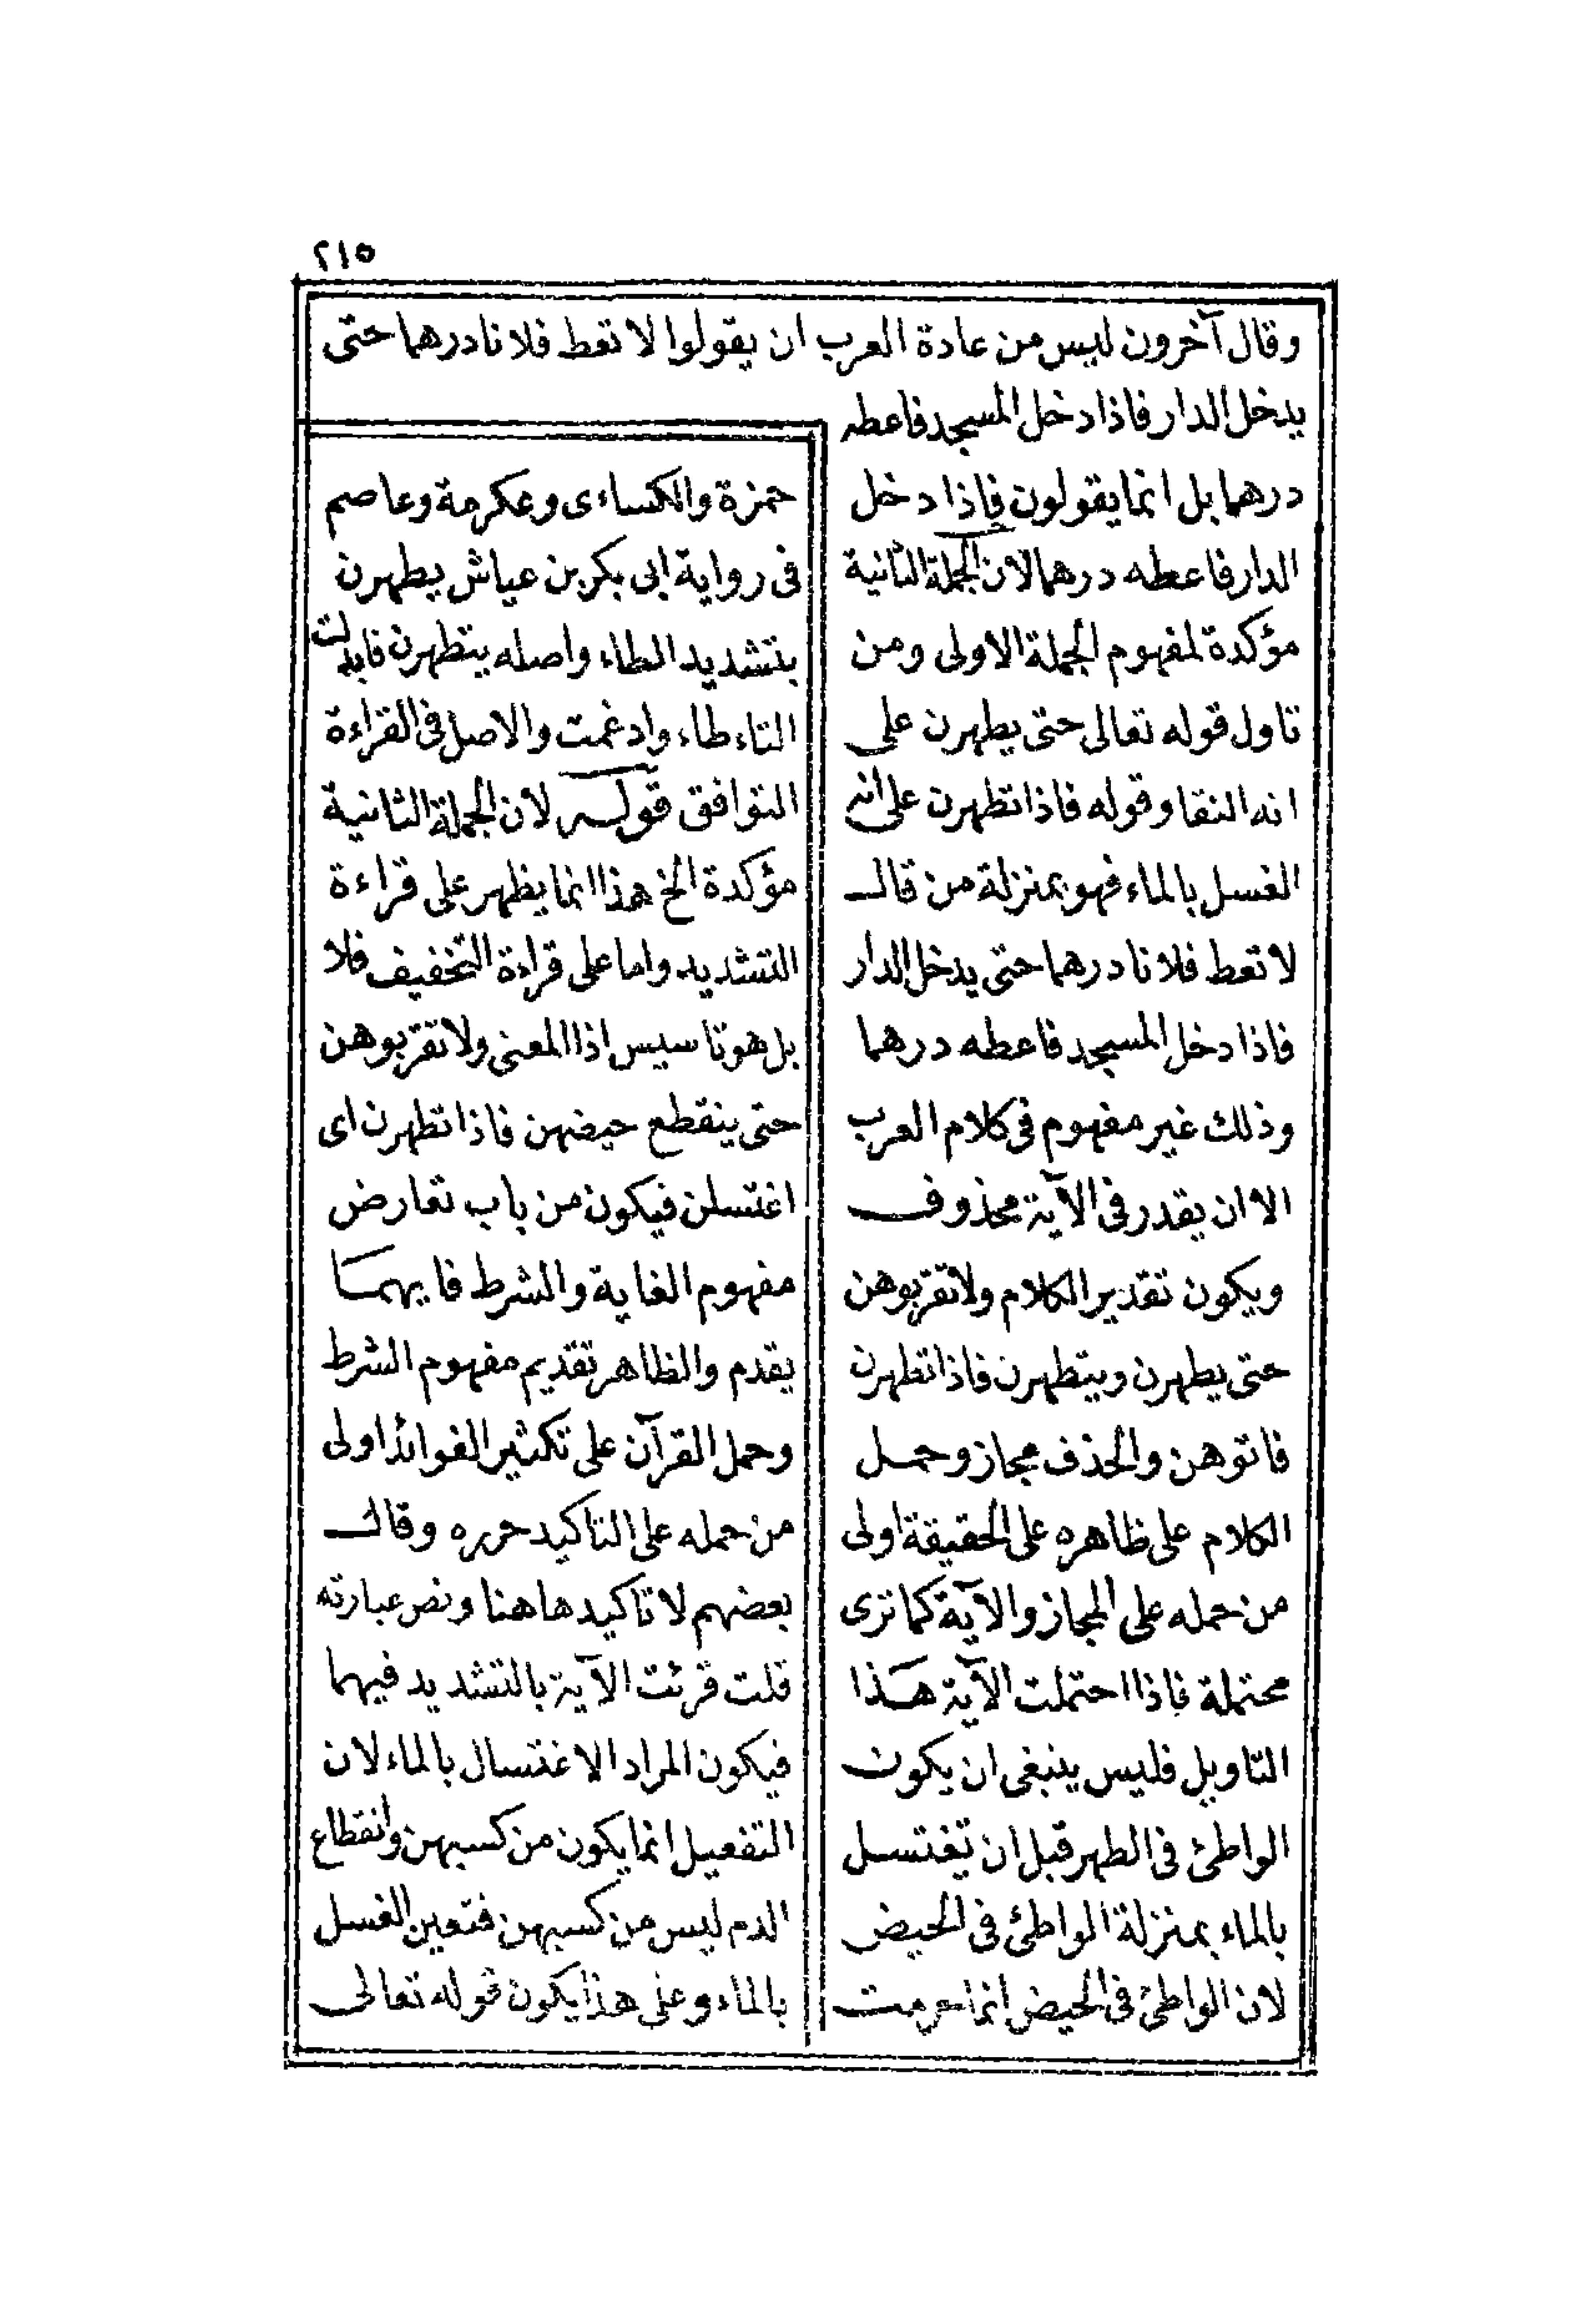 ٢١٥
وقال آخرون ليس من عادة العرب ان يقولوا لا تعط فلانا درهما حتى
يدخل الدار فاذا دخل المسجد فاعطه
درهما بل انما يقولون فاذا دخل
الدار فاعطه درهما لان الجملة الثانية
مؤكدة لمفهوم الجملة الاولى ومن
تاول قوله تعالى حتى يطهرن على
انه النقا وقوله فاذا تطهرن على انه
الغسل بالماء فهو بمنزلة من قال
لا تعط فلانا درهما حتى يدخل الدار
فاذا دخل المسجد فاعطه درهما
وذلك غير مفهوم فى كلام العرب
الا ان يقدر فى الآية محذوف
ويكون تقدير الكلام ولا تقربوهن
حتى يطهرن ويتطهرن فاذا تطهرن
فاتوهن والحذف مجاز وحمل
الكلام على ظاهره على الحقيقة اولى
من حمله على المجاز والآية كما ترى
محتملة فاذا احتملت الآية هذا
التاويل فليس ينبغى ان يكون
الواطئ فى الطهر قبل ان تغتسل
بالماء بمنزلة الواطئ فى الحيض
لان الواطئ فى الحيض انما حرمت
حمزة والكساءى وعكرمة وعاصم
فى رواية ابى بكر بن عياش يطهرن
بتشديد الطاء واصله يتطهرن فابدلت
التاء طاء وادغمت والاصل فى القراءة
التوافق قوله لان الجملة الثانية
مؤكدة الخ هذا انما يظهر على قراءة
التشديد واما على قراءة التخفيف فلا
بل هو تاسيس اذا المعنى ولا تقربوهن
حتى ينقطع حيضهن فاذا تطهرن اى
اغتسلن فيكون من باب تعارض
مفهوم الغاية والشرط فايهما
يقدم والظاهر تقديم مفهوم الشرط
وحمل القرآن على تكثير الفوائد اولى
من حمله على التاكيد حرره وقال
بعضهم لا تاكيد هاهنا ونص عبارته
قلت قرئت الآية بالتشديد فيهما
فيكون المراد الاغتسال بالماء لان
التفعيل انما يكون من كسبهن وانقطاع
الدم ليس من كسبهن فتعين الغسل
بالماء وعلى هذا يكون قوله تعالى